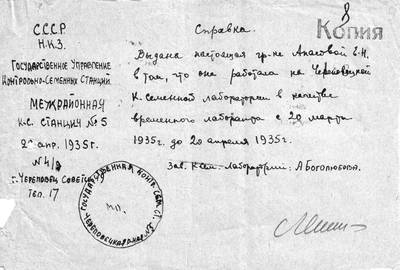 СССР
Н.К.З.
Государственное Управление
Контрольно-Семенных Станций
Межрайонная
К.С. станция №5
20 апр. 1935г.
г. Череповец Советск
тел. 17
Справка.
Копия
Выдана настоящая гр-ке Апасовой Е.Н.
в том, что она работала на Череповецкой
К. Семенной лаборатории в качестве
временного лаборанта с 20 марта
1935г. до 20 апреля 1935г.
Зав. К. Сем. Лабораторией: А Боголюбова.
Государственная Контр. Сем. Ст.
М.П.